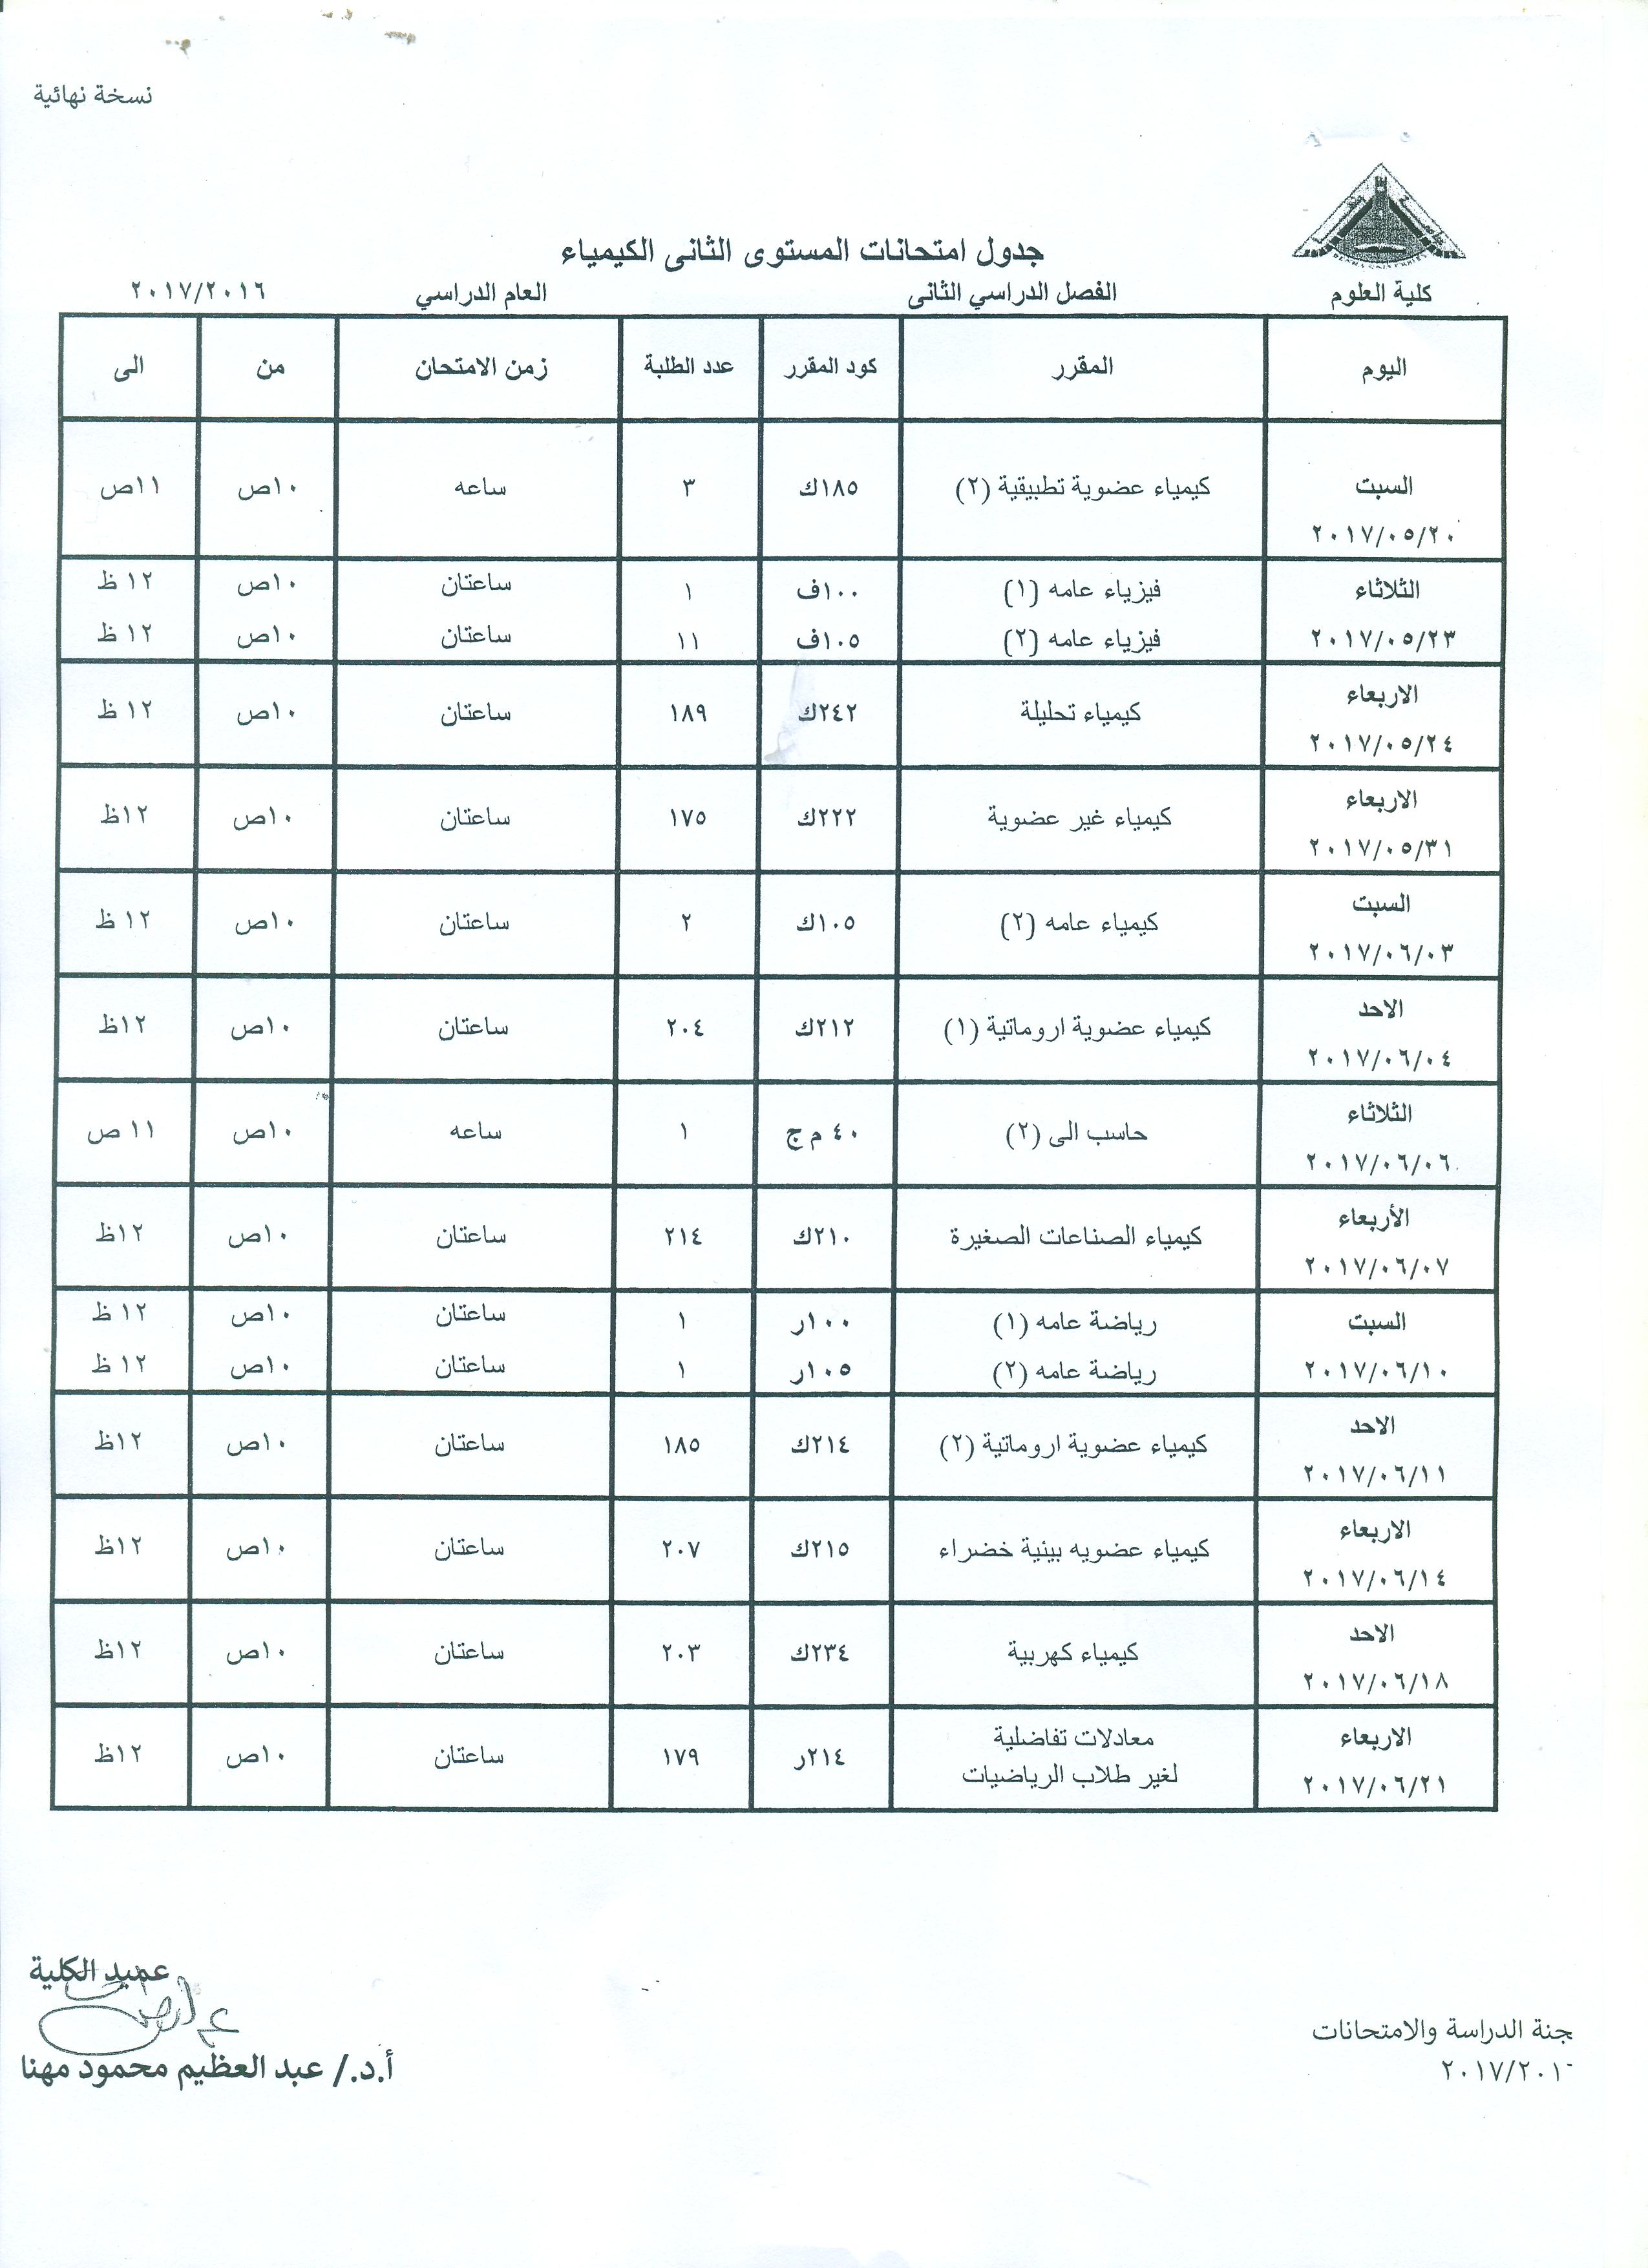 نسخة نهائية
جدول امتحانات المستوى الثانى الكيمياء
كلية العلوم الفصل الدراسي الثانى العام الدراسي ٢٠١٧/٢٠١٦
اليوم المقرر كود المقرر عدد الطلبة زمن الامتحان من الى
السبت ٢٠١٧/٠٥/٢٠ كيمياء عضوية تطبيقية (٢) ١٨٥ك ٣ ساعه ١٠ص ١١ص
الثلاثاء فيزياء عامه (١) ١٠٠ف ١ ساعتان ١٠ص ١٢ ظ
٢٠١٧/٠٥/٢٣ فيزياء عامه (٢) ١٠٥ف ١١ ساعتان ١٠ص ١٢ ظ
الاربعاء ٢٠١٧/٠٥/٢٤ كيمياء تحليلة ٢٤٢ك ١٨٩ ساعتان ١٠ص ١٢ ظ
الاربعاء ٢٠١٧/٠٥/٣١ كيمياء غير عضوية ٢٢٢ك ١٧٥ ساعتان ١٠ص ١٢ظ
السبت ٢٠١٧/٠٦/٠٣ كيمياء عامه (٢) ١٠٥ك ٢ ساعتان ١٠ص ١٢ ظ
الاحد ٢٠١٧/٠٦/٠٤ كيمياء عضوية اروماتية (١) ٢١٢ك ٢٠٤ ساعتان ١٠ص ١٢ظ
الثلاثاء ٢٠١٧/٠٦/٠٦ حاسب الى (٢) ٤٠ م ج ١ ساعه ١٠ص ١١ ص
الأربعاء ٢٠١٧/٠٦/٠٧ كيمياء الصناعات الصغيرة ٢١٠ك ٢١٤ ساعتان ١٠ص ١٢ظ
السبت رياضة عامه (١) ١٠٠ر ١ ساعتان ١٠ص ١٢ ظ
٢٠١٧/٠٦/١٠ رياضة عامه (٢) ١٠٥ر ١ ساعتان ١٠ص ١٢ ظ
الاحد ٢٠١٧/٠٦/١١ كيمياء عضوية اروماتية (٢) ٢١٤ك ١٨٥ ساعتان ١٠ص ١٢ظ
الاربعاء ٢٠١٧/٠٦/١٤ كيمياء عضويه بيئية خضراء ٢١٥ك ٢٠٧ ساعتان ١٠ص ١٢ظ
الاحد ٢٠١٧/٠٦/١٨ كيمياء كهربية ٢٣٤ك ٢٠٣ ساعتان ١٠ص ١٢ظ
الاربعاء ٢٠١٧/٠٦/٢١ معادلات تفاضلية لغير طلاب الرياضيات ٢١٤ر ١٧٩ ساعتان ١٠ص ١٢ظ
عميد الكلية
جنة الدراسة والامتحانات
أ.د./ عبد العظيم محمود مهنا